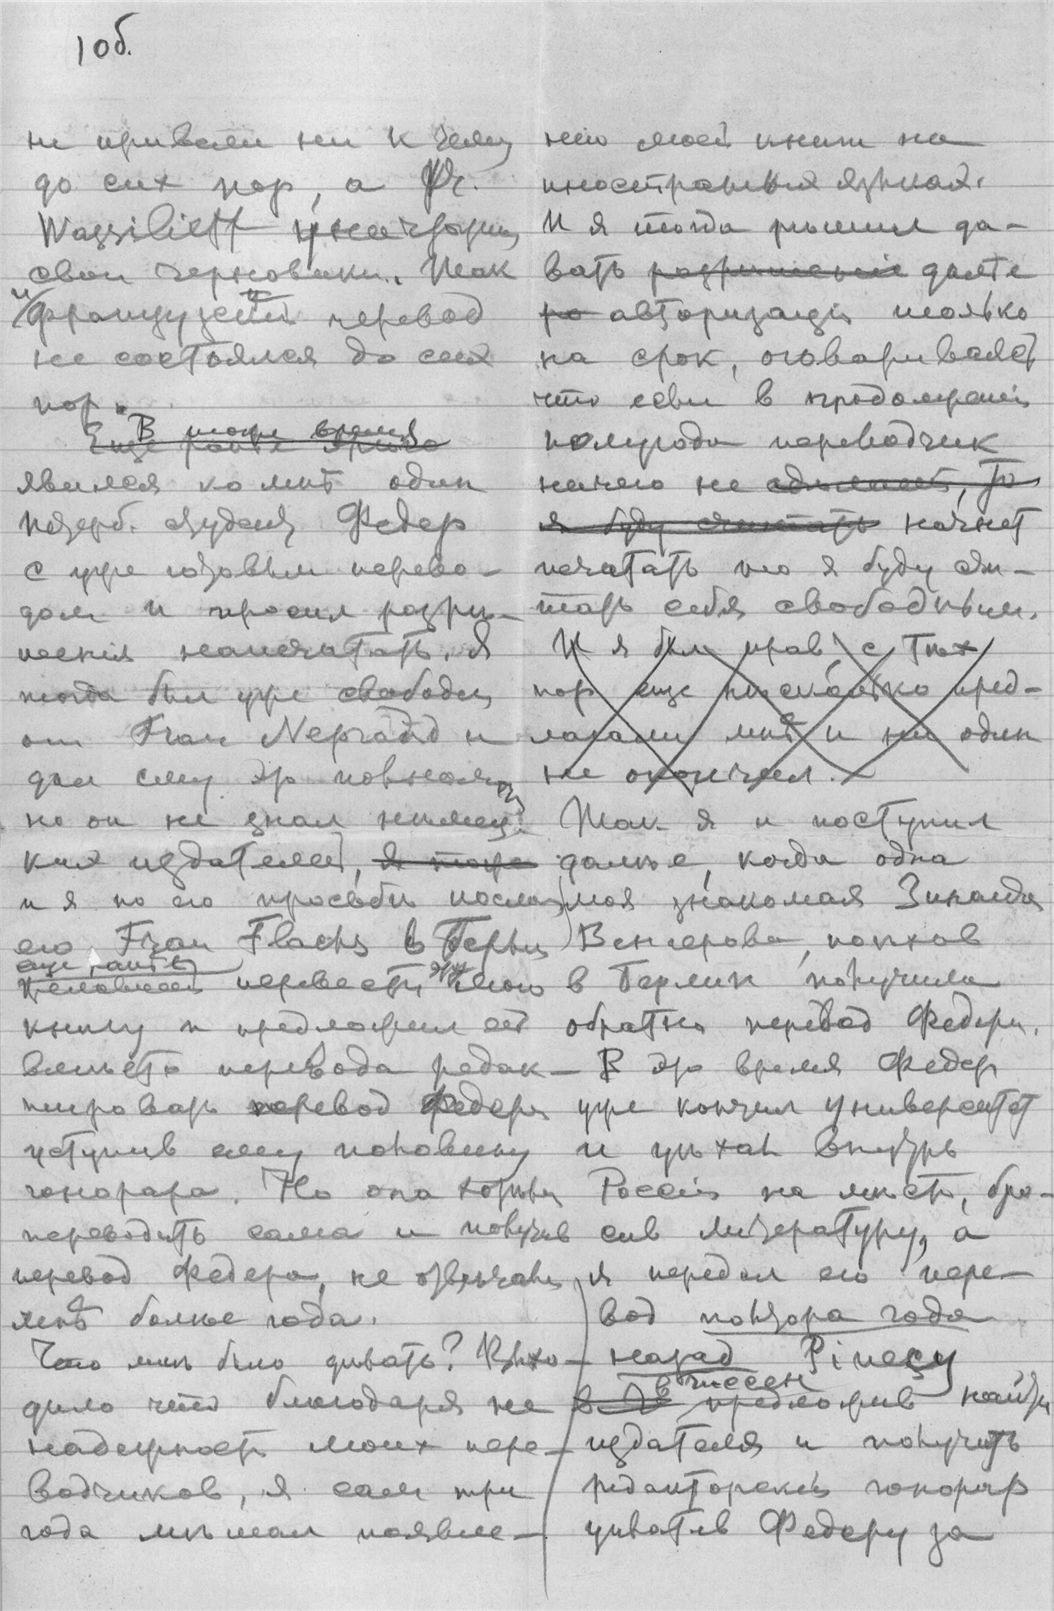 10б.
не привели ни к чему
до сих пор, а Fr.
Wassilieff уничтожил
свои черновики. Так
и французский перевод
не состоялся до сих
пор.
Еще ранее этого
В то же время
явился ко мнѣ один
петерб. студент Федер
с уже готовым перево-
дом и просил разрѣ-
шения напечатать. Я
тогда был уже свободен
от Frau и
дал ему это позволение,
но он не знал немец-
ких издателей, я тоже
и я по его просьбѣ послал
его Frau Flachs в Берлин
перевести эту мою
книгу и предложил ей
вместо перевода редак-
тировать перевод Федера
уступив ему половину
гонорара. Но она хотѣла
переводить сама и получив
перевод Федера, не отвѣчала
мнѣ болѣе года.
Что мнѣ было дѣлать? Выхо-
дило что благодаря не
надежность моих пере-
водчиков, я сам три
года мѣшал появле-
нію моей книги на
иностранныя языках.
И я тогда рѣшил да-
вать разрѣшеніе далѣе
авторизаціи только
на срок, оговариваясь
что если в продолженіи
полугода переводчик
ничего не сдѣлает, то
я буду считать начнет
печатать то я буду счи-
тать себя свободным.
И я был прав, с тѣх
пор еще нѣсколько пред-
лагали мнѣ и ни один
не окончил.
Так я и поступил
далѣе, когда одна
моя знакомая Зинаида
Венгерова, поѣхав
в Берлин получила
обратно перевод Федера.
В это время Федер
уже кончил университет
и уѣхал внутрь
Россіи на мѣсто, бро-
сив литературу, а
я передал его пере-
вод полтора года
назад Pinesу
в Яссен
предложив найти
издателя и получить
редакторскій гонорар
уплатив Федеру за